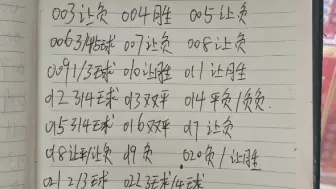 003 让负 004 胜 005 让负
006 3/4球 007 让负 008 让负
009 1/3球 010 让胜 011 让胜
012 3/4球 013 双平 014 平负/负负
015 3/4球 016 双平 017 让负
018 让平/让负 019 负 020 负/让胜
021 2/3球 022 3球/4球